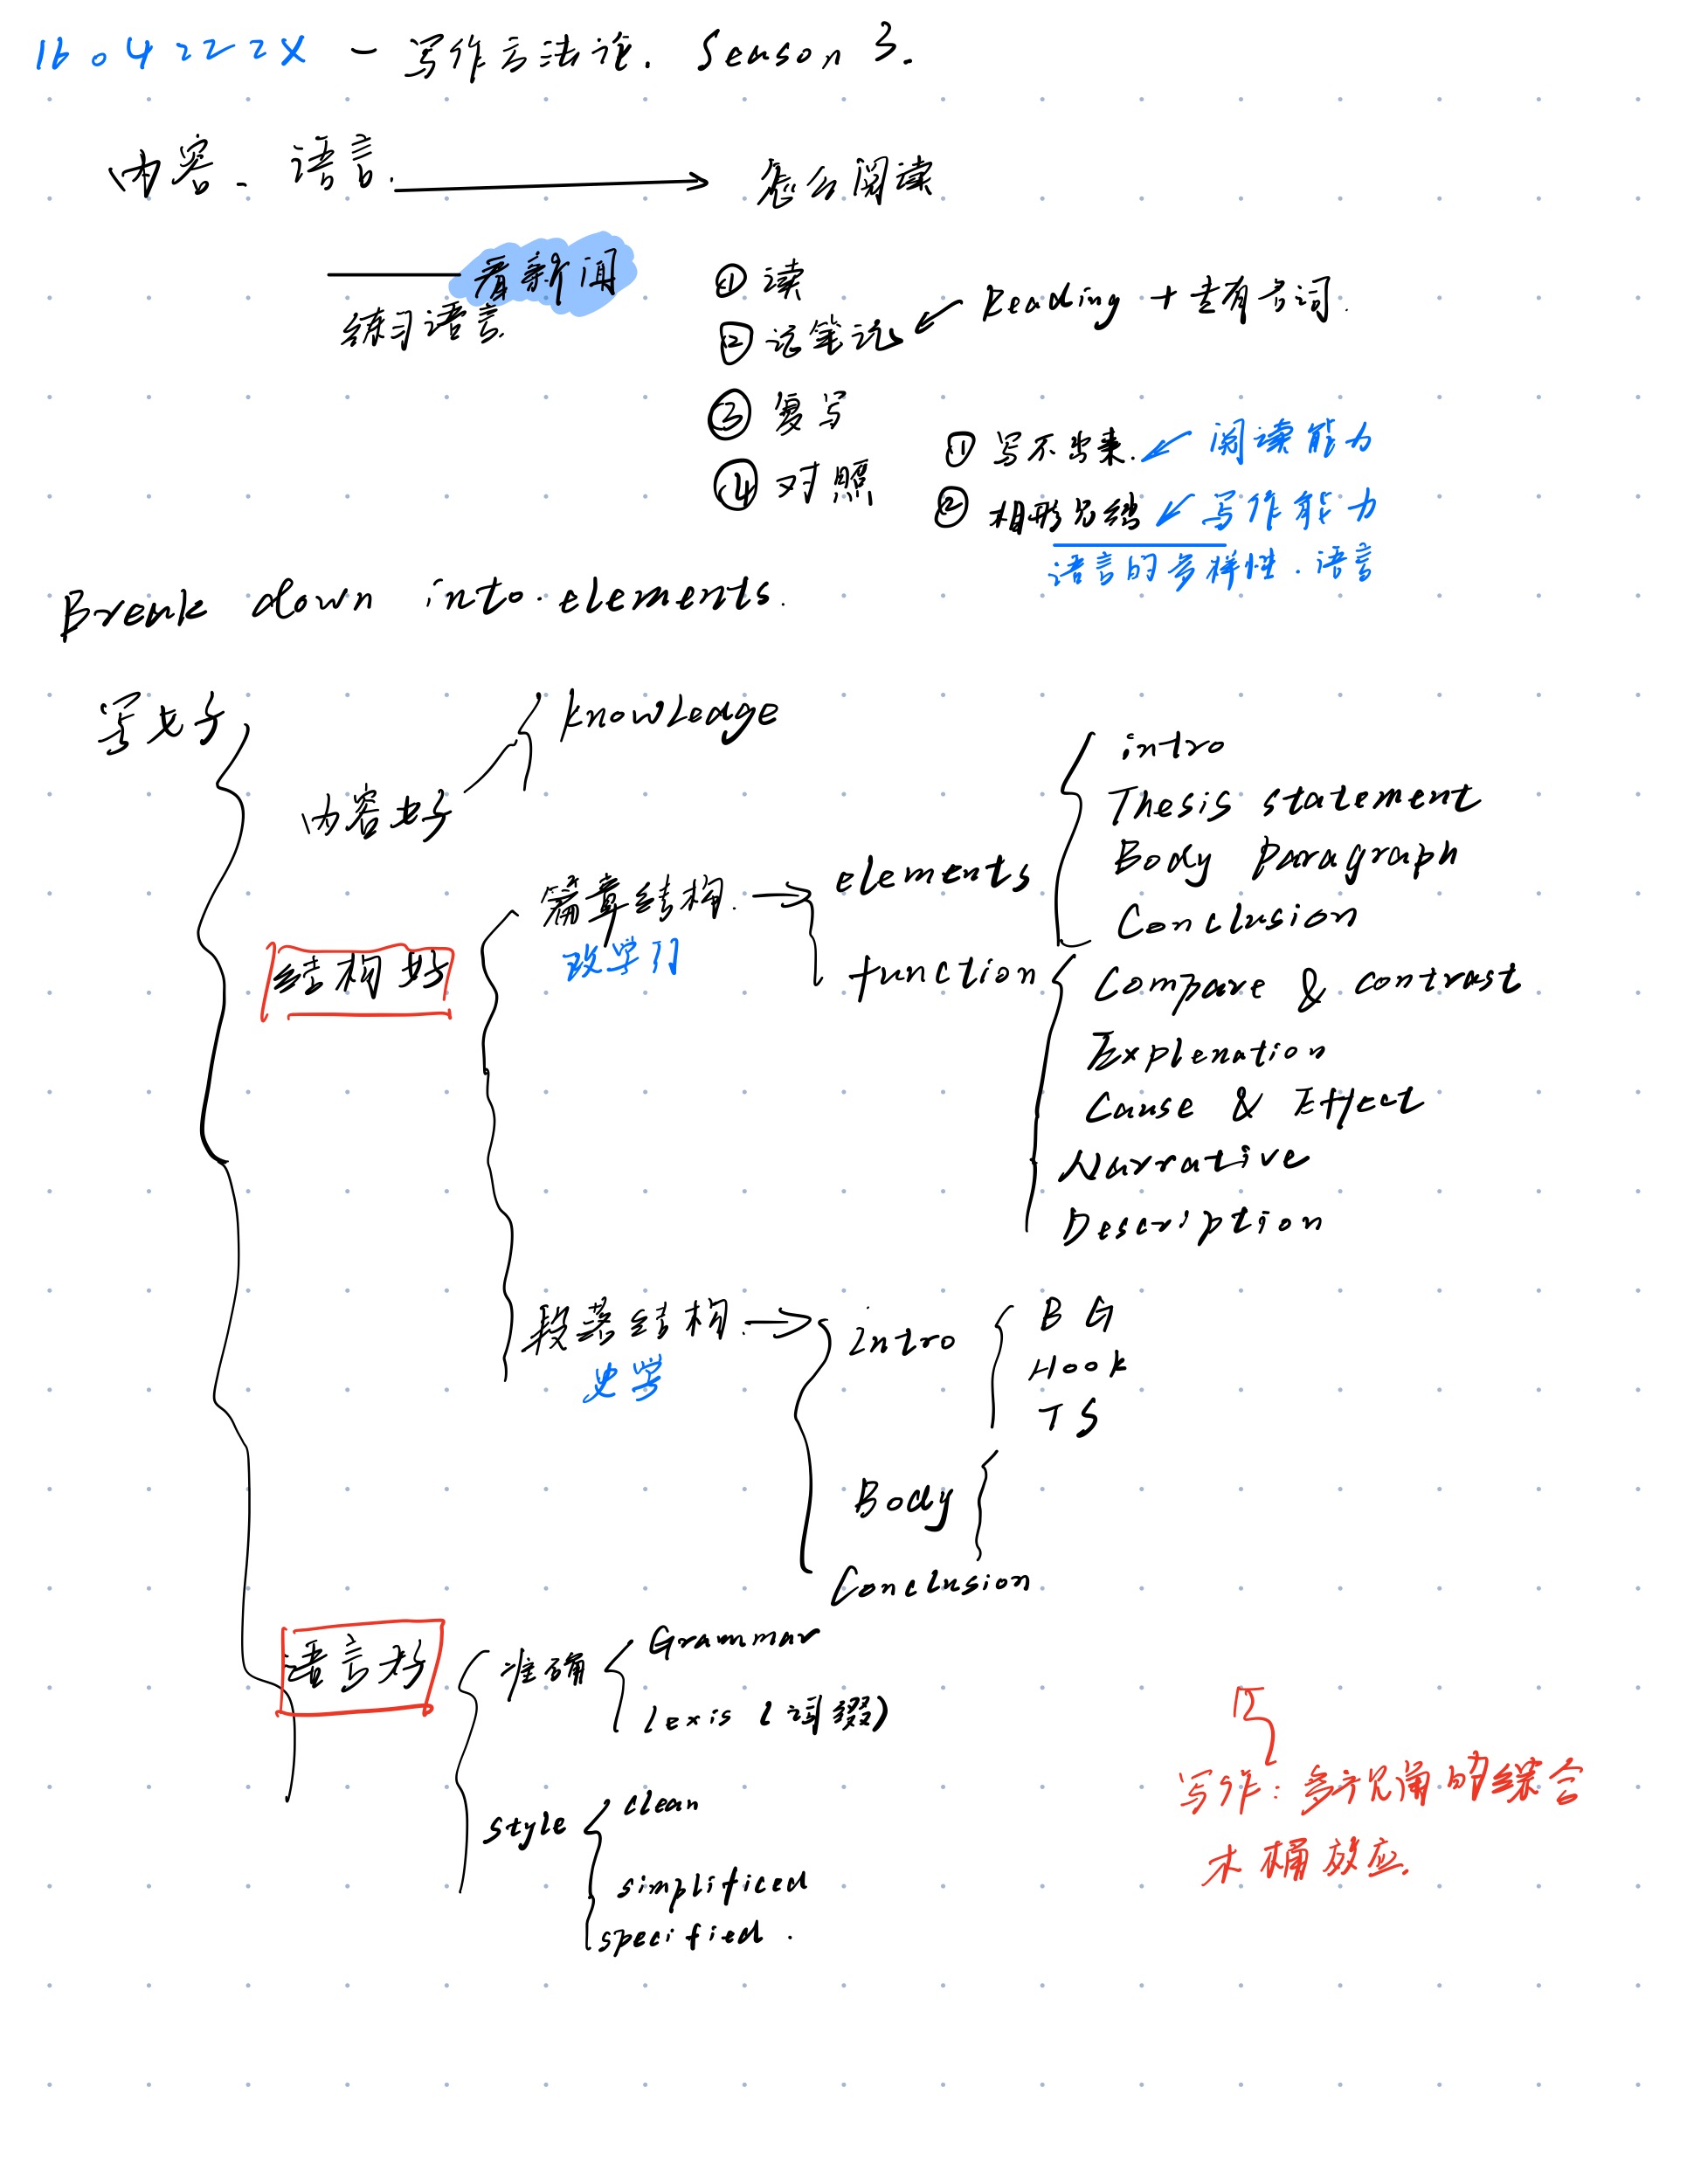 1604222X - 写作方法论. Season 3.
内容、语言. → 怎么阅读
看新闻
练习语言.
① 读
② 记笔记 ← Reading + 专有名词.
③ 复写
④ 对照
① 写不出来. ← 阅读能力
② 相形见绌 ← 写作能力
语言的多样性. 语言
Break down into elements.
写好
内容好
knowledge
结构好
篇章结构. →
elements
intro
Thesis statement
Body Paragraph
Conclusion
function
Compare & contrast
Explenation
Cause & Effect
Narrative
Description
段落结构. →
Intro
BG
Hook
TS
Body
Conclusion
语言好
准确
Grammar
lexis (词缀)
style
clean
simplificed
specified.
写作: 多视角的综合
木桶效应.